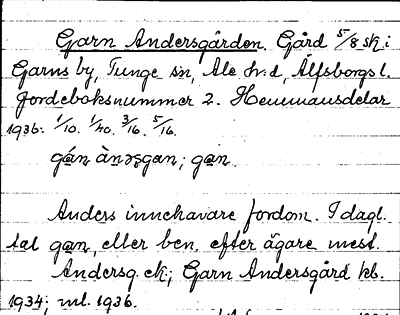 Garn Andersgården. Gård 5/8 sk. i
Garns by, Tunge sn, Ale h:d, Älfsborgs l.
Jordeboksnummer 2. Hemmansdelar
1936: 1/10. 1/40. 3/16. 5/16.
gán ànəʂgan; gan.
Anders innehavare fordom. I dagl.
tal gan, eller ben. efter ägare mest.
Andersg. ek.; Garn Andersgård kb.
1934; ml. 1936.